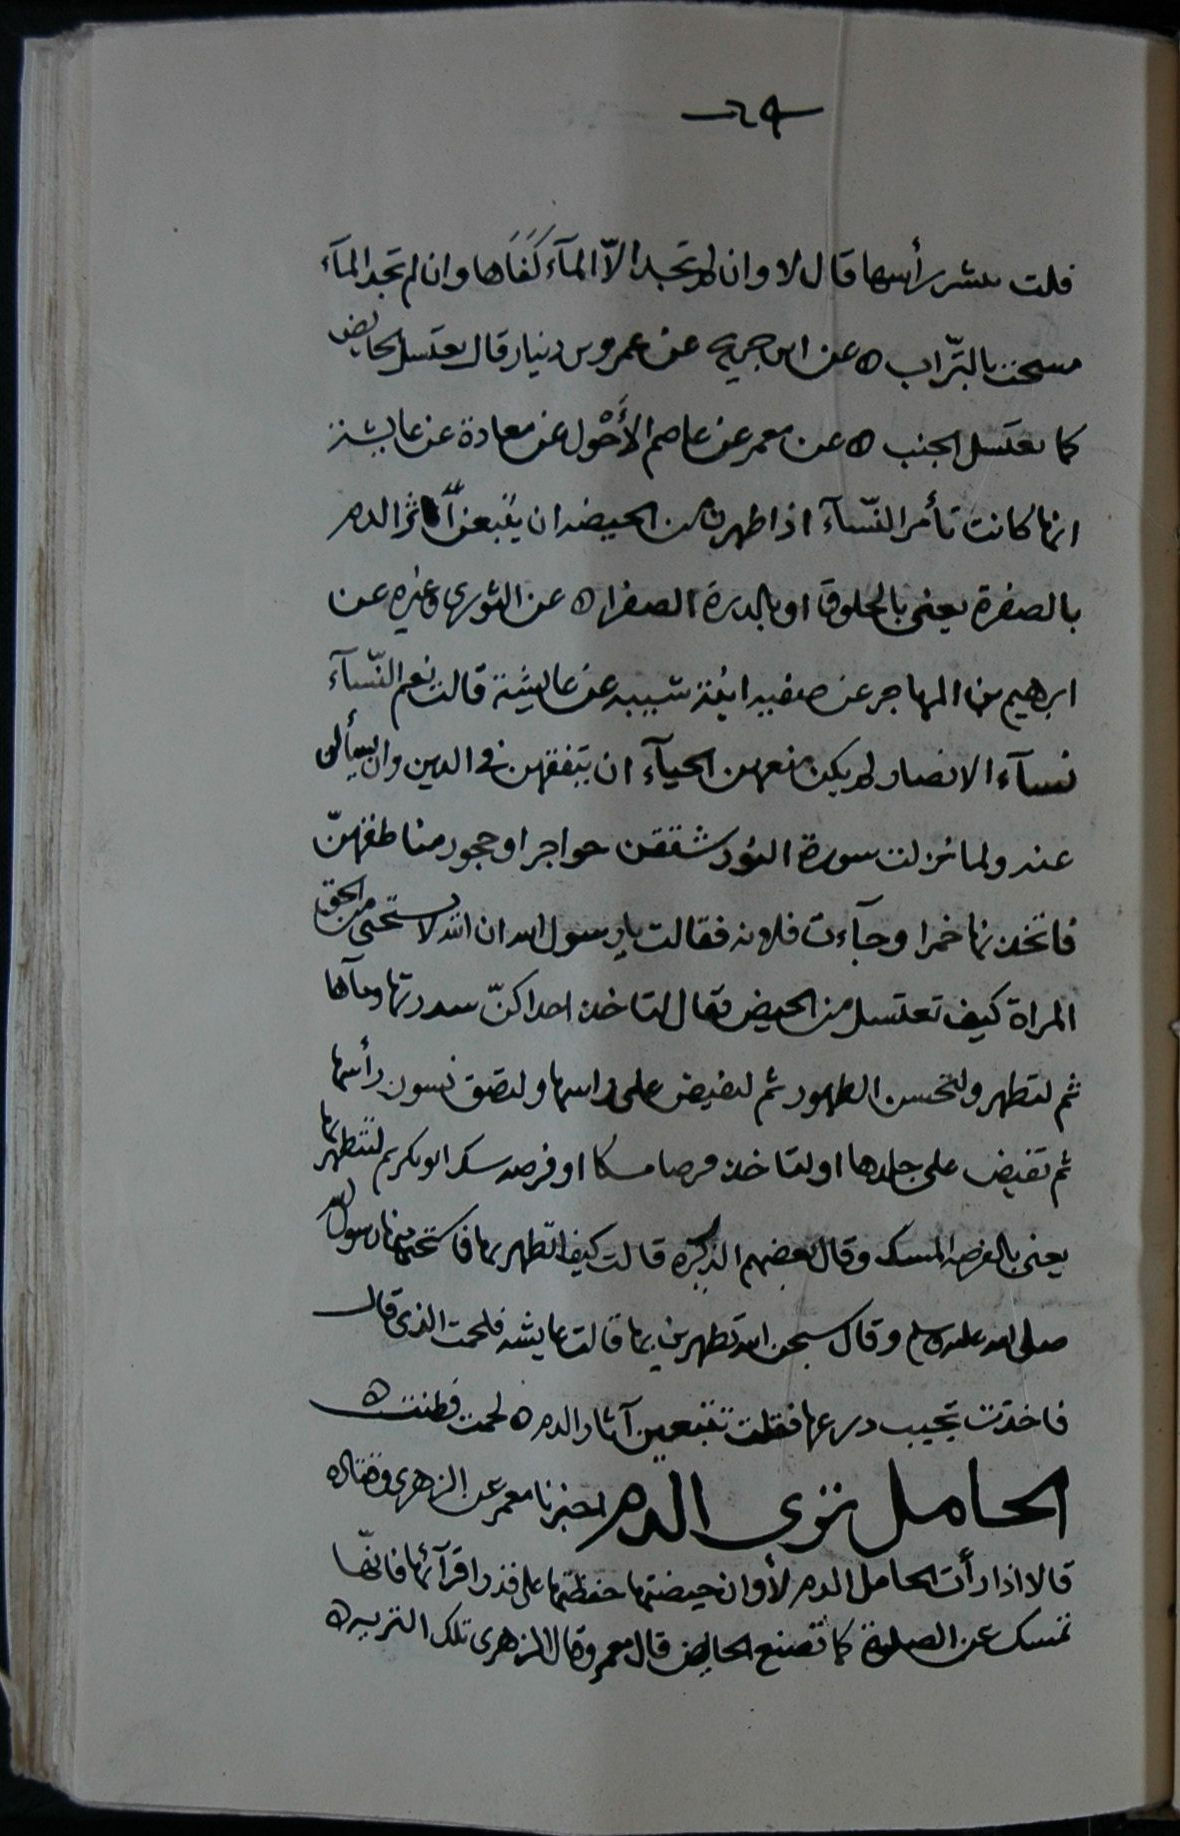 ٢٩
قلت تنشر رأسها قال لا وان لم تجد الاّ المآء كَفَاها وان لم تجد المآء
مسحت بالتّراب ه عن ابن جريج عن عمرو بن دينار قال تغتسل الحائض
كما تغتسل الجنب ه عن معمر عن عاصم الأَحْول عن معاذة عن عايشة
انها كانت تأمر النّسآء اذا طهرن من الحيضة ان يتبعن اثر الدم
بالصفرة يعنى بالخلوق او بالدرة الصفرا ه عن الثورى وغيره عن
ابرهيم بن المهاجر عن صفيه ابنة شيبه عن عايشة قالت نعم النّسآء
نسآء الانصار لم يكن منعهن الحيآء ان يتفقهن فى الدين وان يسألن
عنه ولما نزلت سورة النور شققن حواجز او حجوز مناطقهنّ
فاتخذنها خمرا وجآءت فلانه فقالت يا رسول الله ان الله لا يستحى من الحق
المراة كيف تغتسل من الحيض فقال لتاخذ احداكنّ سدرتها ومآها
ثم لتطهر ولتحسن الطهور ثم لتفيض على راسها ولتصق بسون رأسها
ثم تفيض على جلدها او لتاخذ فرصا مسكا او فرصه ابو بكر يم لتتطهر بها
يعنى بالفرصه المسك وقال بعضهم الذكره قالت كيف اتطهر بها فاستحى منها رسول الله
صلى الله عليه وسلم وقال سبحن الله تطهرين بها قالت عايشه فلحمت الذى قال
فاخذت بجيب درعها فقلت تتبعين آثار الدم ه لحمت فطنت ه
الحامل ترى الدم اخبرنا معمر عن الزهرى وقتاده
قالا اذا رأت الحامل الدم لأوان حيضتها حفظتها على قدر اقرآئها فانّها
تمسك عن الصلوة كما تصنع الحايض قال معمر وقال الزهرى تلك التربيه ه